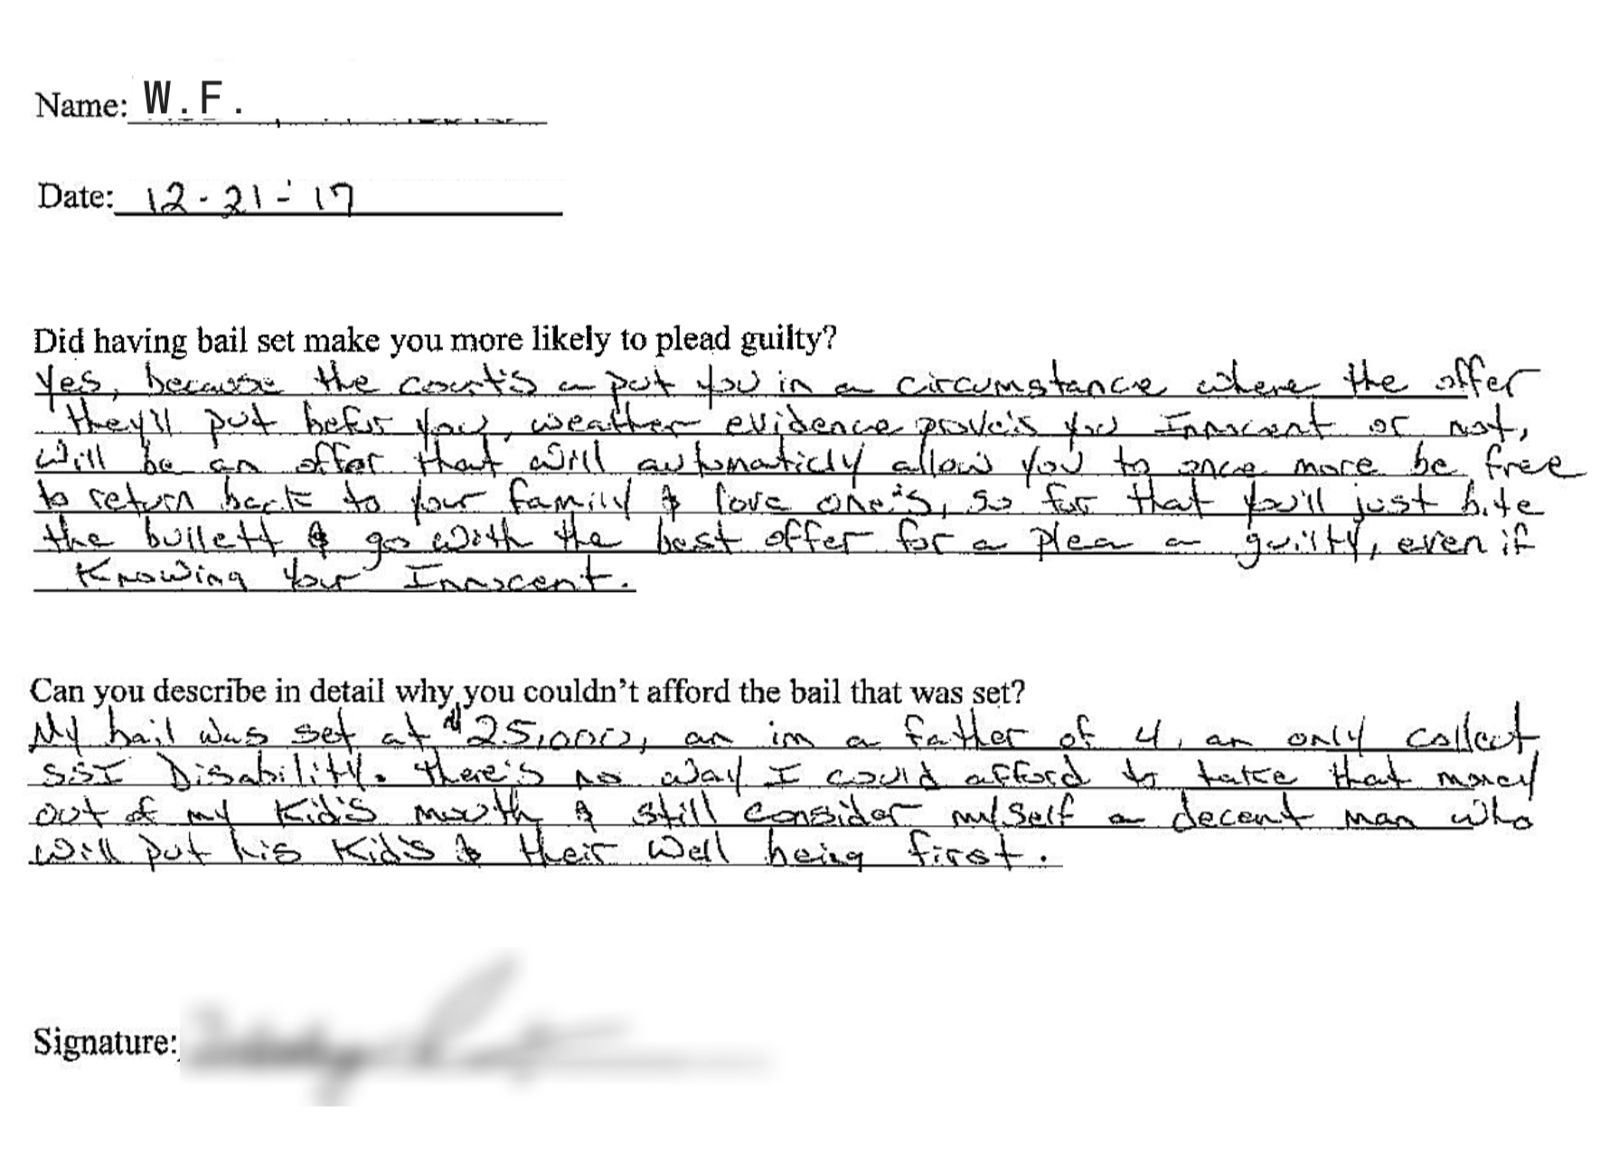 Name: W.F.
Date: 12-21-17
Did having bail set make you more likely to plead guilty?
Yes, because the court's a put you in a circumstance where the offer
they'll put befor you, weather evidence prove's you Innocent or not,
will be an offer that will automaticly allow you to once more be free
to return back to your family & love one's, so for that you'll just bite
the bullett & go with the best offer for a plea a guilty, even if
Knowing your Innocent.
Can you describe in detail why you couldn't afford the bail that was set?
My bail was set at $25,000, an im a father of 4, an only collect
SSI Disability. there's no way I could afford to take that money
out of my Kid's mouth & still consider myself a decent man who
will put his Kid's & their well being first.
Signature: